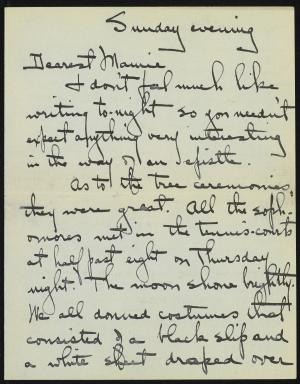 Sunday evening
Dearest Mamie
I don't feel much like
writing to-night so you needn't
expect anything very interesting
in the way of an epistle.
As to the tree ceremonies,
they were great. All the soph-
omores met in the tennis-courts
at half past eight on Thursday
night. The moon shone brightly.
We all donned costumes that
consisted of a black slip and
a white sheet draped over